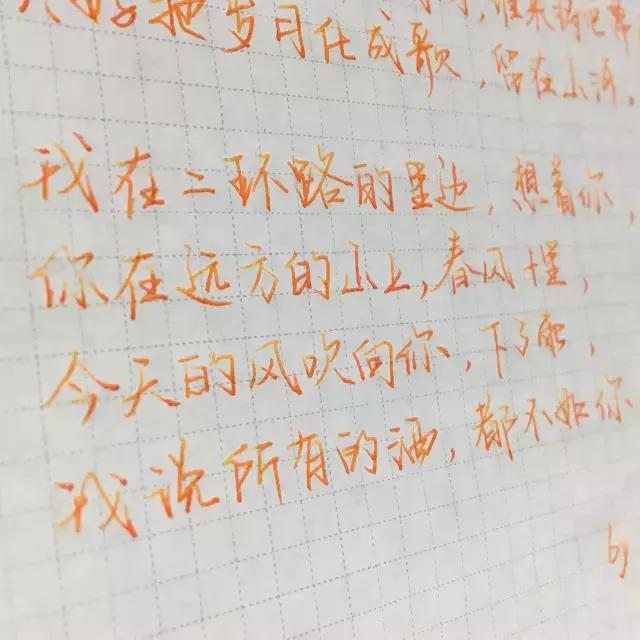 把岁月化成歌，留在山河，
我在二环路的里边，想着你，
你在远方的山上，春风十里，
今天的风吹向你，下了雨，
我说所有的酒，都不如你
by